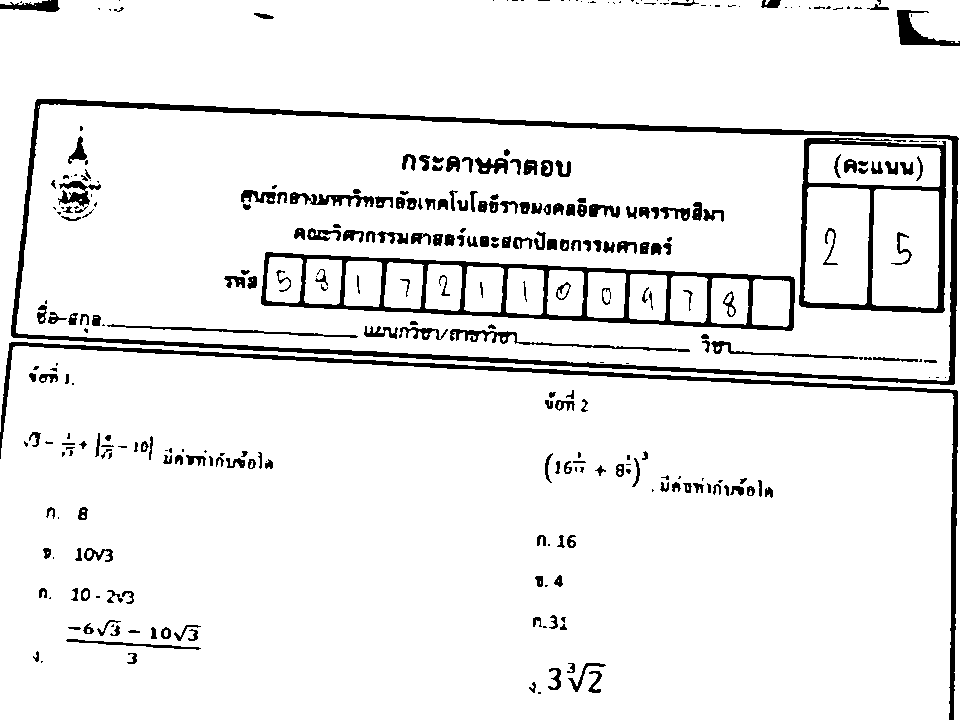 กระดาษคำตอบ
(คะแนน)
ศูนย์กลางมหาวิทยาลัยเทคโนโลยีราชมงคลอีสาน นครราชสีมา
คณะวิศวกรรมศาสตร์และสถาปัตยกรรมศาสตร์
2 5
รหัส 5 8 1 7 2 1 1 0 0 9 7 8
ชื่อ-สกุล แผนกวิชา/สาขาวิชา วิชา
ข้อที่ 1.
√3 - 1/√3 + | /√3 - 10| มีค่าเท่ากับข้อใด
ก. 8
ข. 10√3
ค. 10 - 2√3
ง. (-6√3 - 10√3)/3
ข้อที่ 2
(16 + 8)³ มีค่าเท่ากับข้อใด
ก. 16
ข. 4
ค. 31
ง. 3∛2